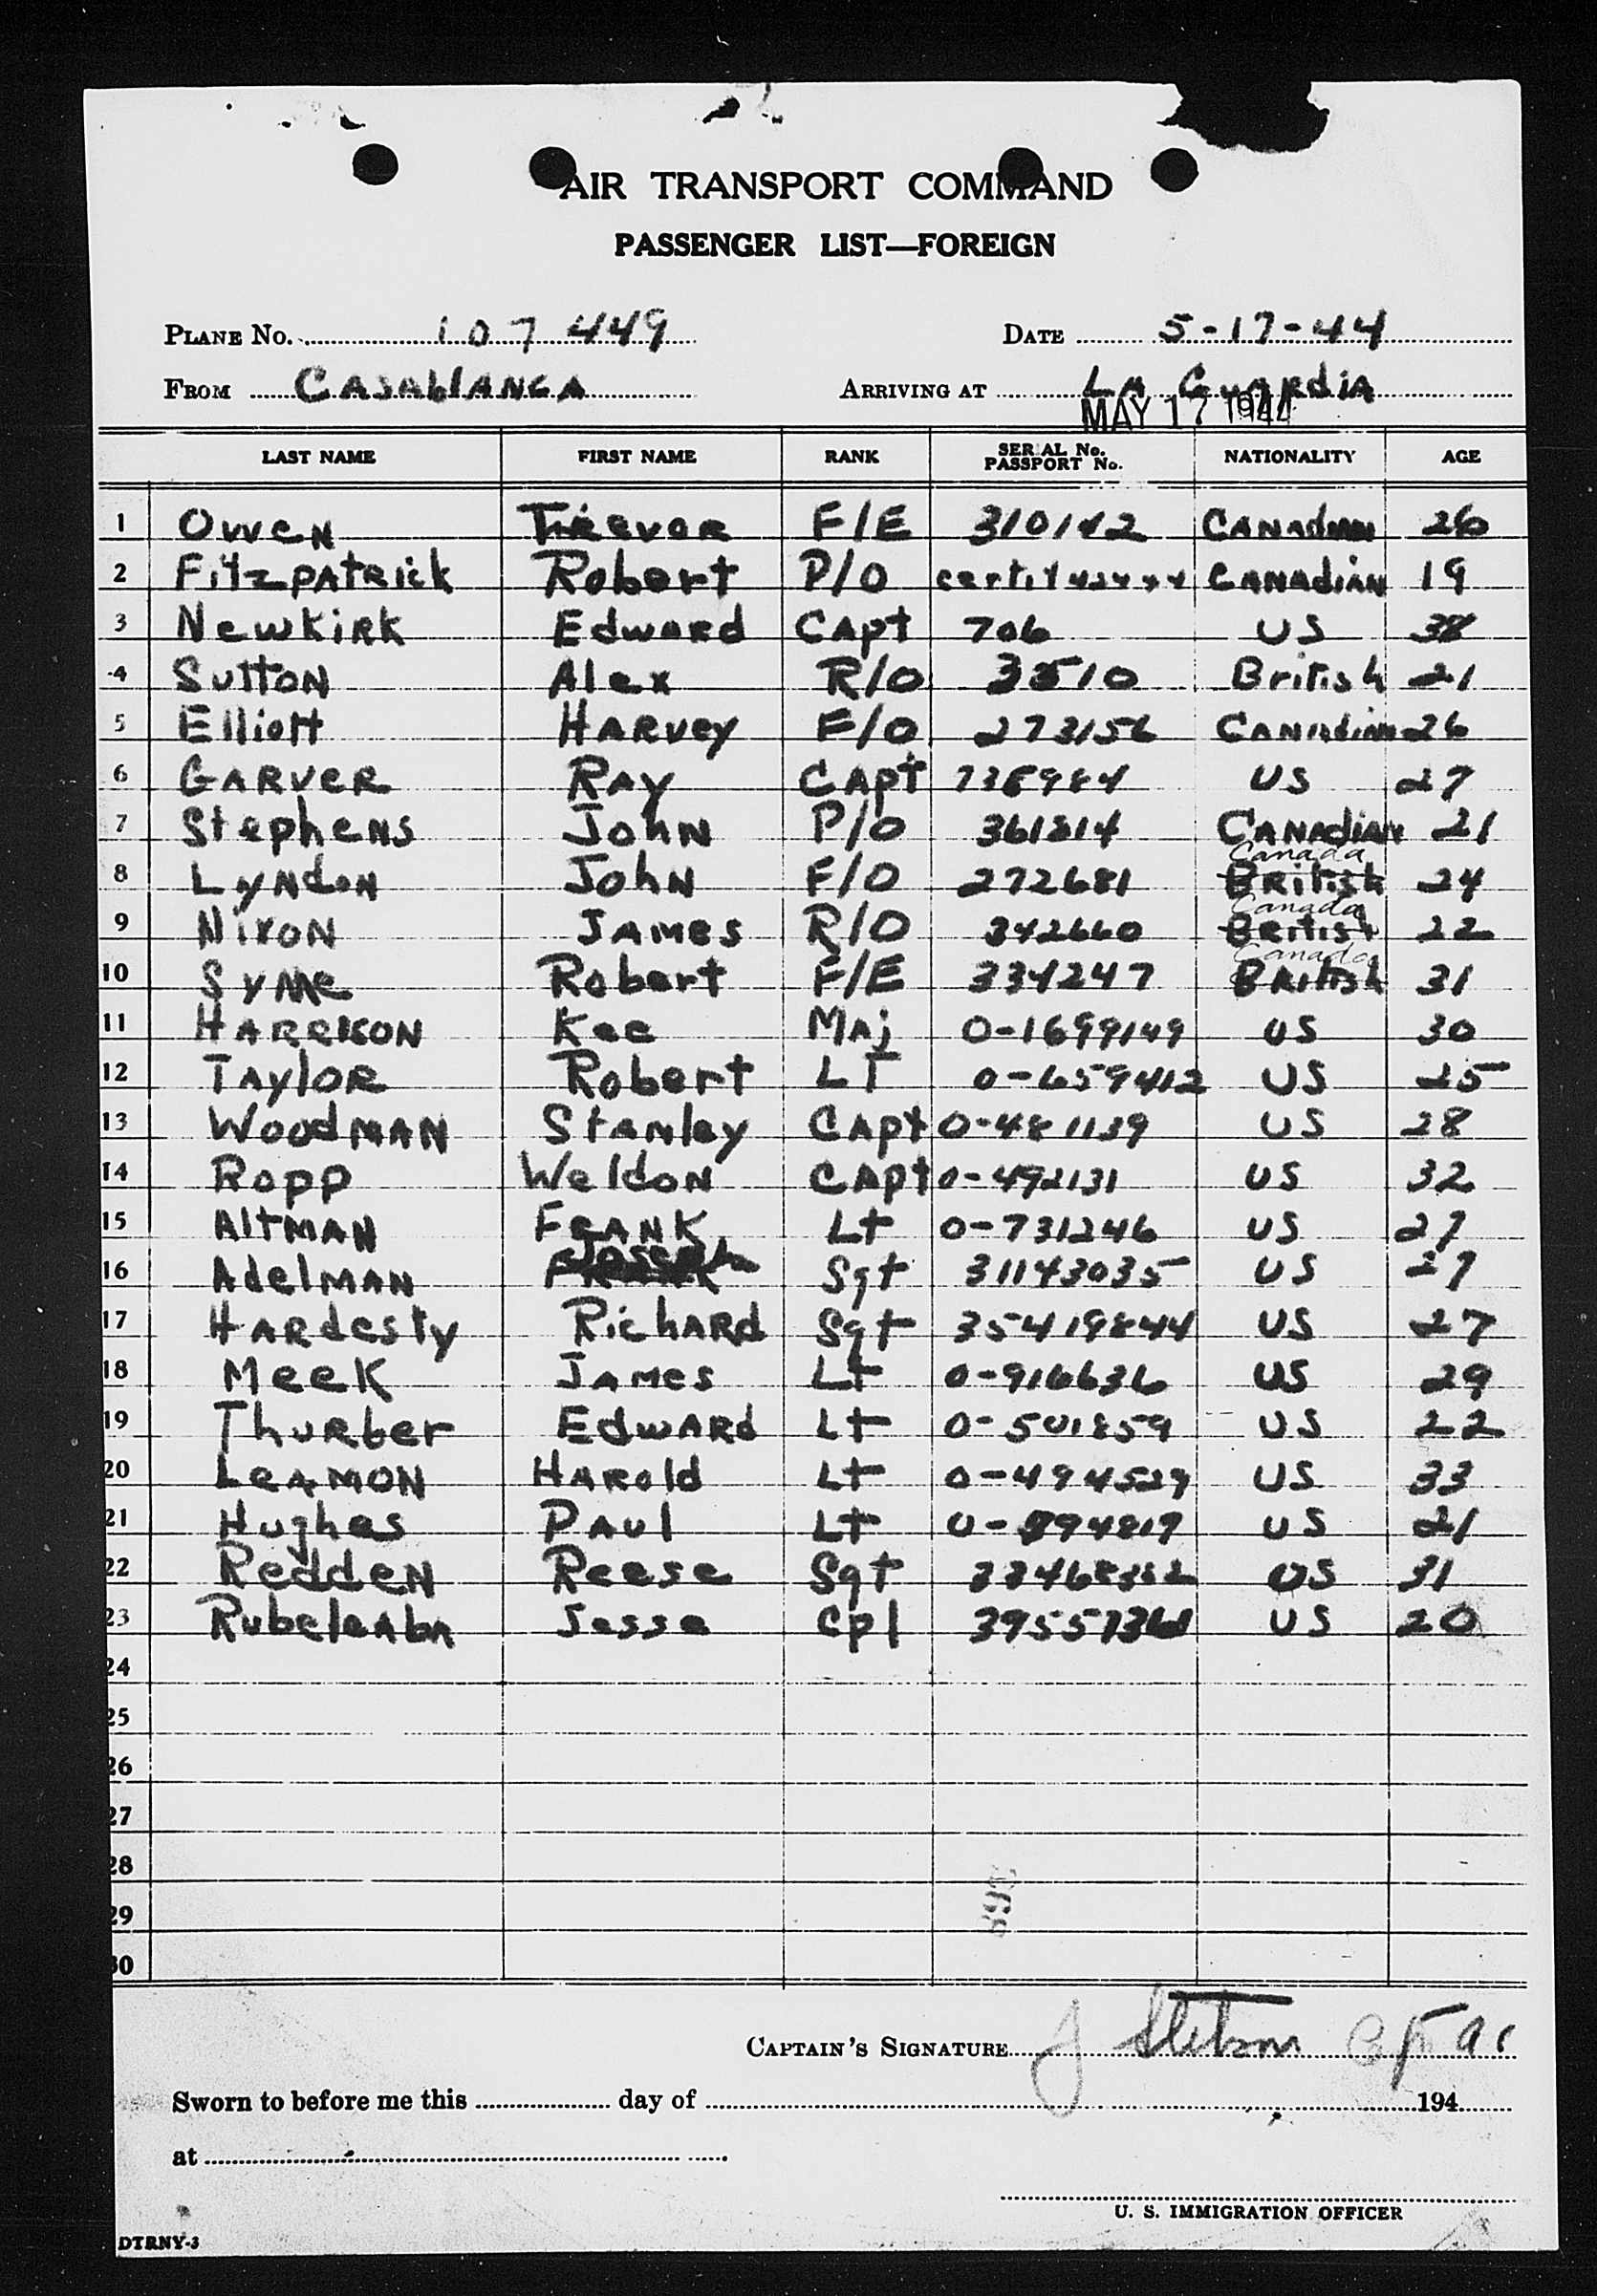 AIR TRANSPORT COMMAND
PASSENGER LIST—FOREIGN
PLANE No. 107 449 DATE 5-17-44
FROM CASABLANCA ARRIVING AT LA GUARDIA
MAY 17 1944
LAST NAME FIRST NAME RANK SERIAL No. PASSPORT No. NATIONALITY AGE
1 Owen Trevor F/E 310142 Canadian 26
2 Fitzpatrick Robert P/O Canadian 19
3 Newkirk Edward Capt 706 US 38
4 Sutton Alex R/O 33510 British 21
5 Elliott Harvey F/O 273156 Canadian 26
6 Garver Ray Capt US 27
7 Stephens John P/O 361814 Canadian 21
Canada
8 Lyndon John F/O 272681 British 24
Canada
9 Nixon James R/O 342660 British 22
Canada
10 Syme Robert F/E 334247 British 31
11 Harrison Kee Maj 0-1699149 US 30
12 Taylor Robert LT 0-659412 US 25
13 Woodman Stanley Capt 0-481139 US 28
14 Ropp Weldon Capt 0-492131 US 32
15 Altman Frank Lt 0-731246 US 27
16 Adelman Joseph Sgt 31143035 US 27
17 Hardesty Richard Sgt 35419844 US 27
18 Meek James Lt 0-916636 US 29
19 Thurber Edward Lt 0-501859 US 22
20 Leamon Harold Lt 0-494529 US 33
21 Hughes Paul Lt US 21
22 Redden Reese Sgt US 31
23 Jesse Cpl US 20
24
25
26
27
28
29
30
CAPTAIN'S SIGNATURE J
Sworn to before me this day of 194
at
U. S. IMMIGRATION OFFICER
DTRNY-3